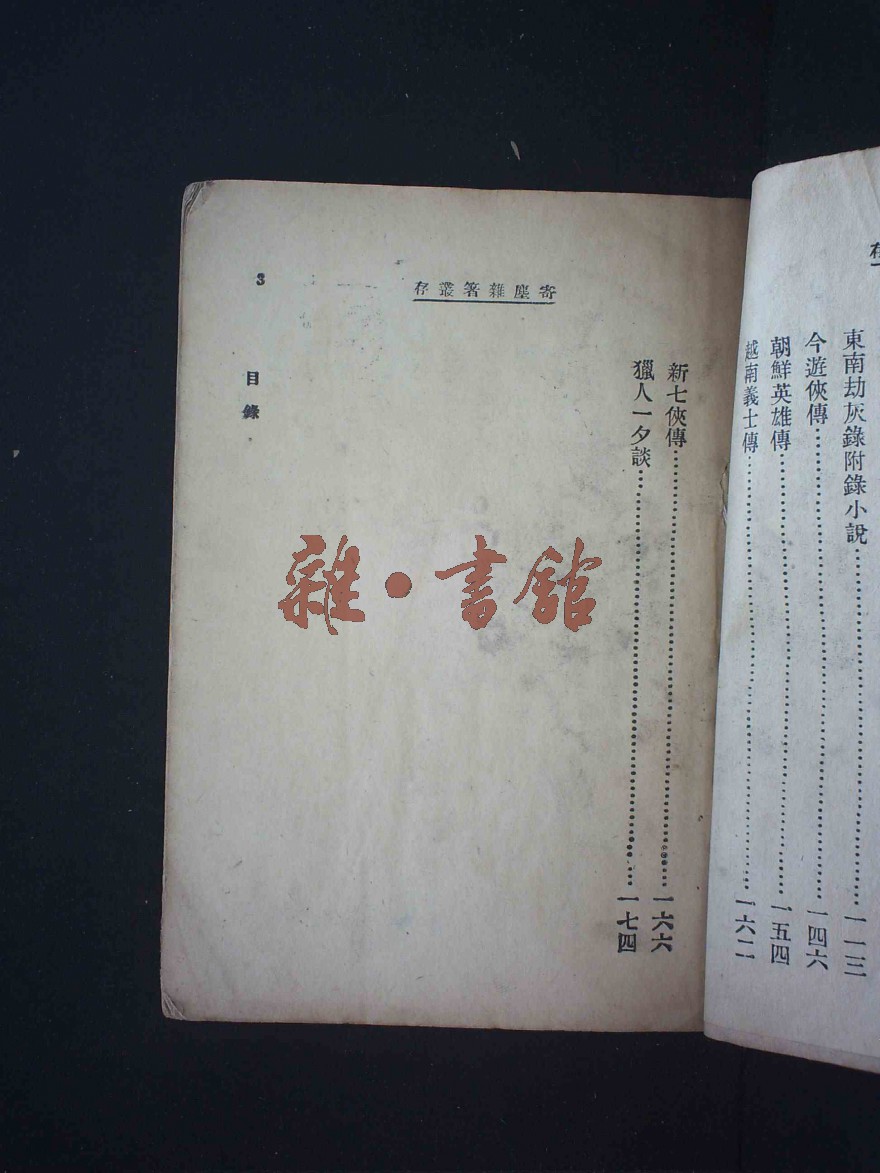 東南劫灰錄附錄小說……一一三
今遊俠傳……一四六
朝鮮英雄傳……一五四
越南義士傳……一六二
寄塵雜箸叢存
新七俠傳……一六六
獵人一夕談……一七四
3
目錄
雜·書館